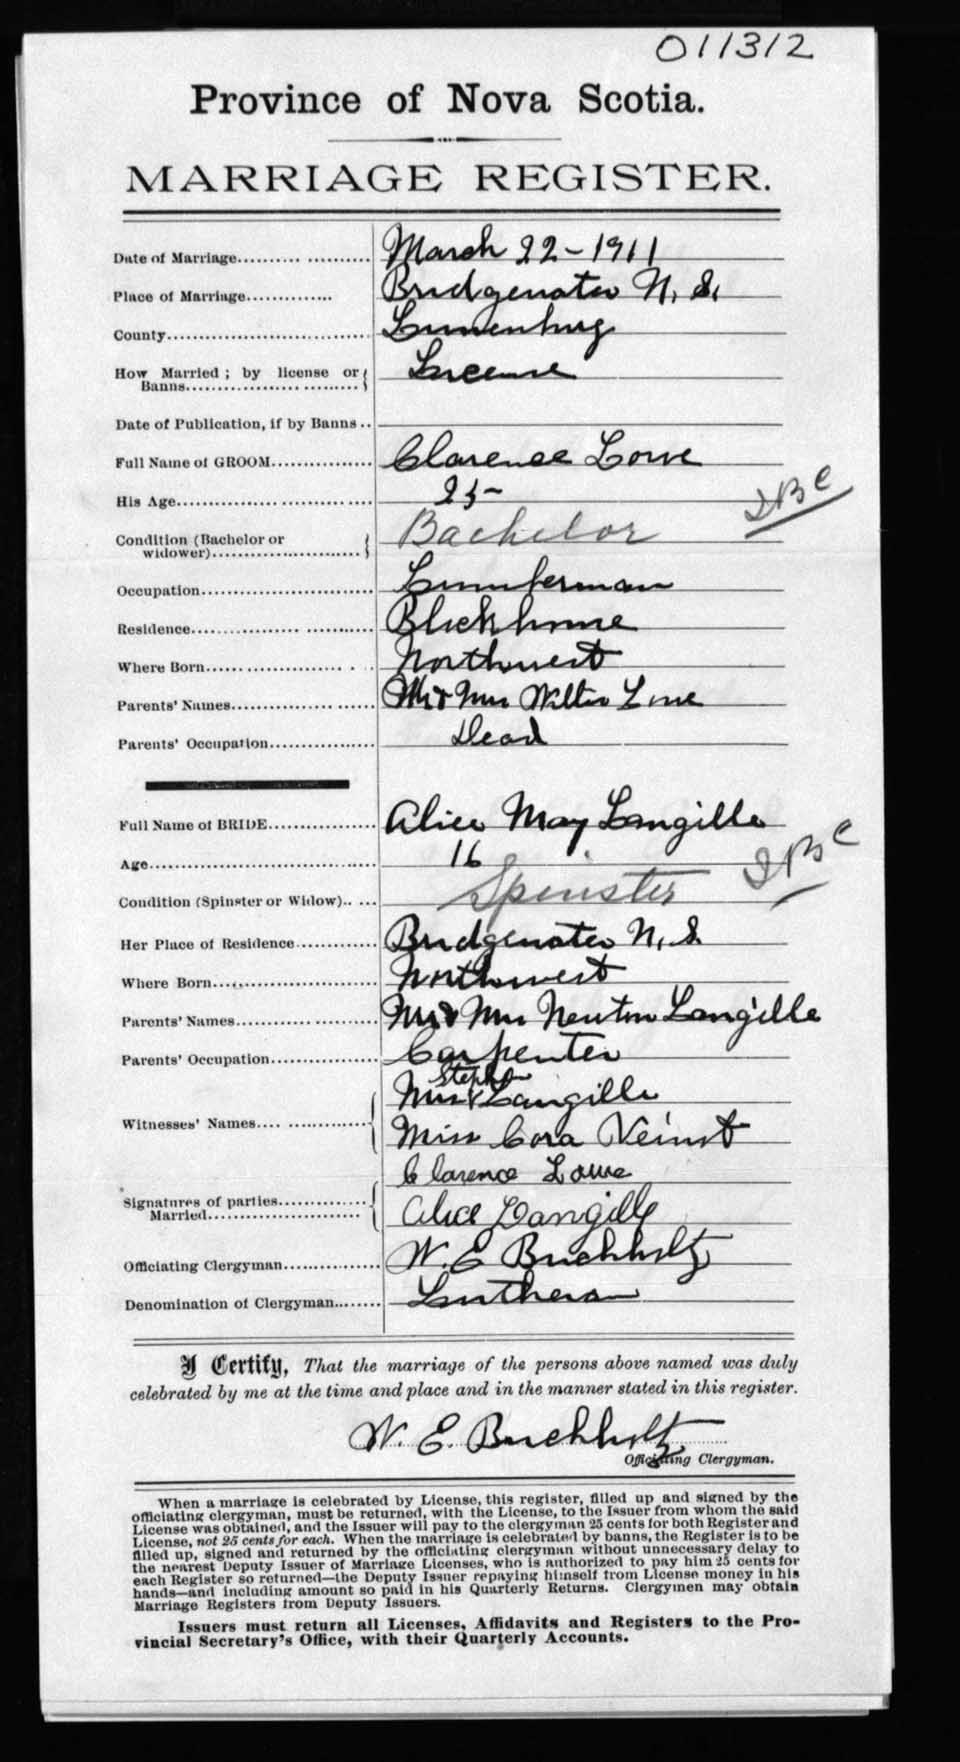 011312
Province of Nova Scotia.
MARRIAGE REGISTER.
Date of Marriage.......... ........... March 22 - 1911
Place of Marriage.............. Bridgewater N. S.
County................................. Lunenburg
How Married ; by license or License
Banns..............................
Date of Publication, if by Banns ..
Full Name of GROOM................ Clarence Lowe
His Age................................ 25-
Condition (Bachelor or Bachelor
widower).........................
Occupation............................ Lumberman
Residence............................. Blockhouse
Where Born.......................... Northwest
Parents' Names..................... Mr & Mrs Lowe
Parents' Occupation................. Dead
Full Name of BRIDE................. Alice May Langille
Age..................................... 16
Condition (Spinster or Widow).. ... Spinster
Her Place of Residence............. Bridgewater N. S.
Where Born.......................... Northwest
Parents' Names..................... Mr & Mrs Newton Langille
Parents' Occupation................. Carpenter
Witnesses' Names.... ............. Mrs Steph Langille
Miss Cora Veinot
Clarence Lowe
Signatures of parties..............
Married........................ Alice Langille
Officiating Clergyman................ W. E Buchholtz
Denomination of Clergyman........ Lutheran
I Certify, That the marriage of the persons above named was duly
celebrated by me at the time and place and in the manner stated in this register.
W. E. Buchholtz
Officiating Clergyman.
When a marriage is celebrated by License, this register, filled up and signed by the
officiating clergyman, must be returned, with the License, to the Issuer from whom the said
License was obtained, and the Issuer will pay to the clergyman 25 cents for both Register and
License, not 25 cents for each. When the marriage is celebrated by banns, the Register is to be
filled up, signed and returned by the officiating clergyman without unnecessary delay to
the nearest Deputy Issuer of Marriage Licenses, who is authorized to pay him 25 cents for
each Register so returned—the Deputy Issuer repaying himself from License money in his
hands—and including amount so paid in his Quarterly Returns. Clergymen may obtain
Marriage Registers from Deputy Issuers.
Issuers must return all Licenses, Affidavits and Registers to the Pro-
vincial Secretary's Office, with their Quarterly Accounts.